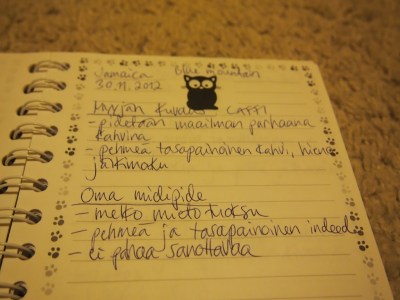 Jamaica Blue mountain
30.11.2012
Myyjän kuvaus CAFFI
- pidetään maailman parhaana
kahvina
- pehmeä tasapainoinen kahvi, hieno
jälkimaku
Oma mielipide
- melko mieto tuoksu
- pehmeä ja tasapainoinen indeed
- ei pahaa sanottavaa